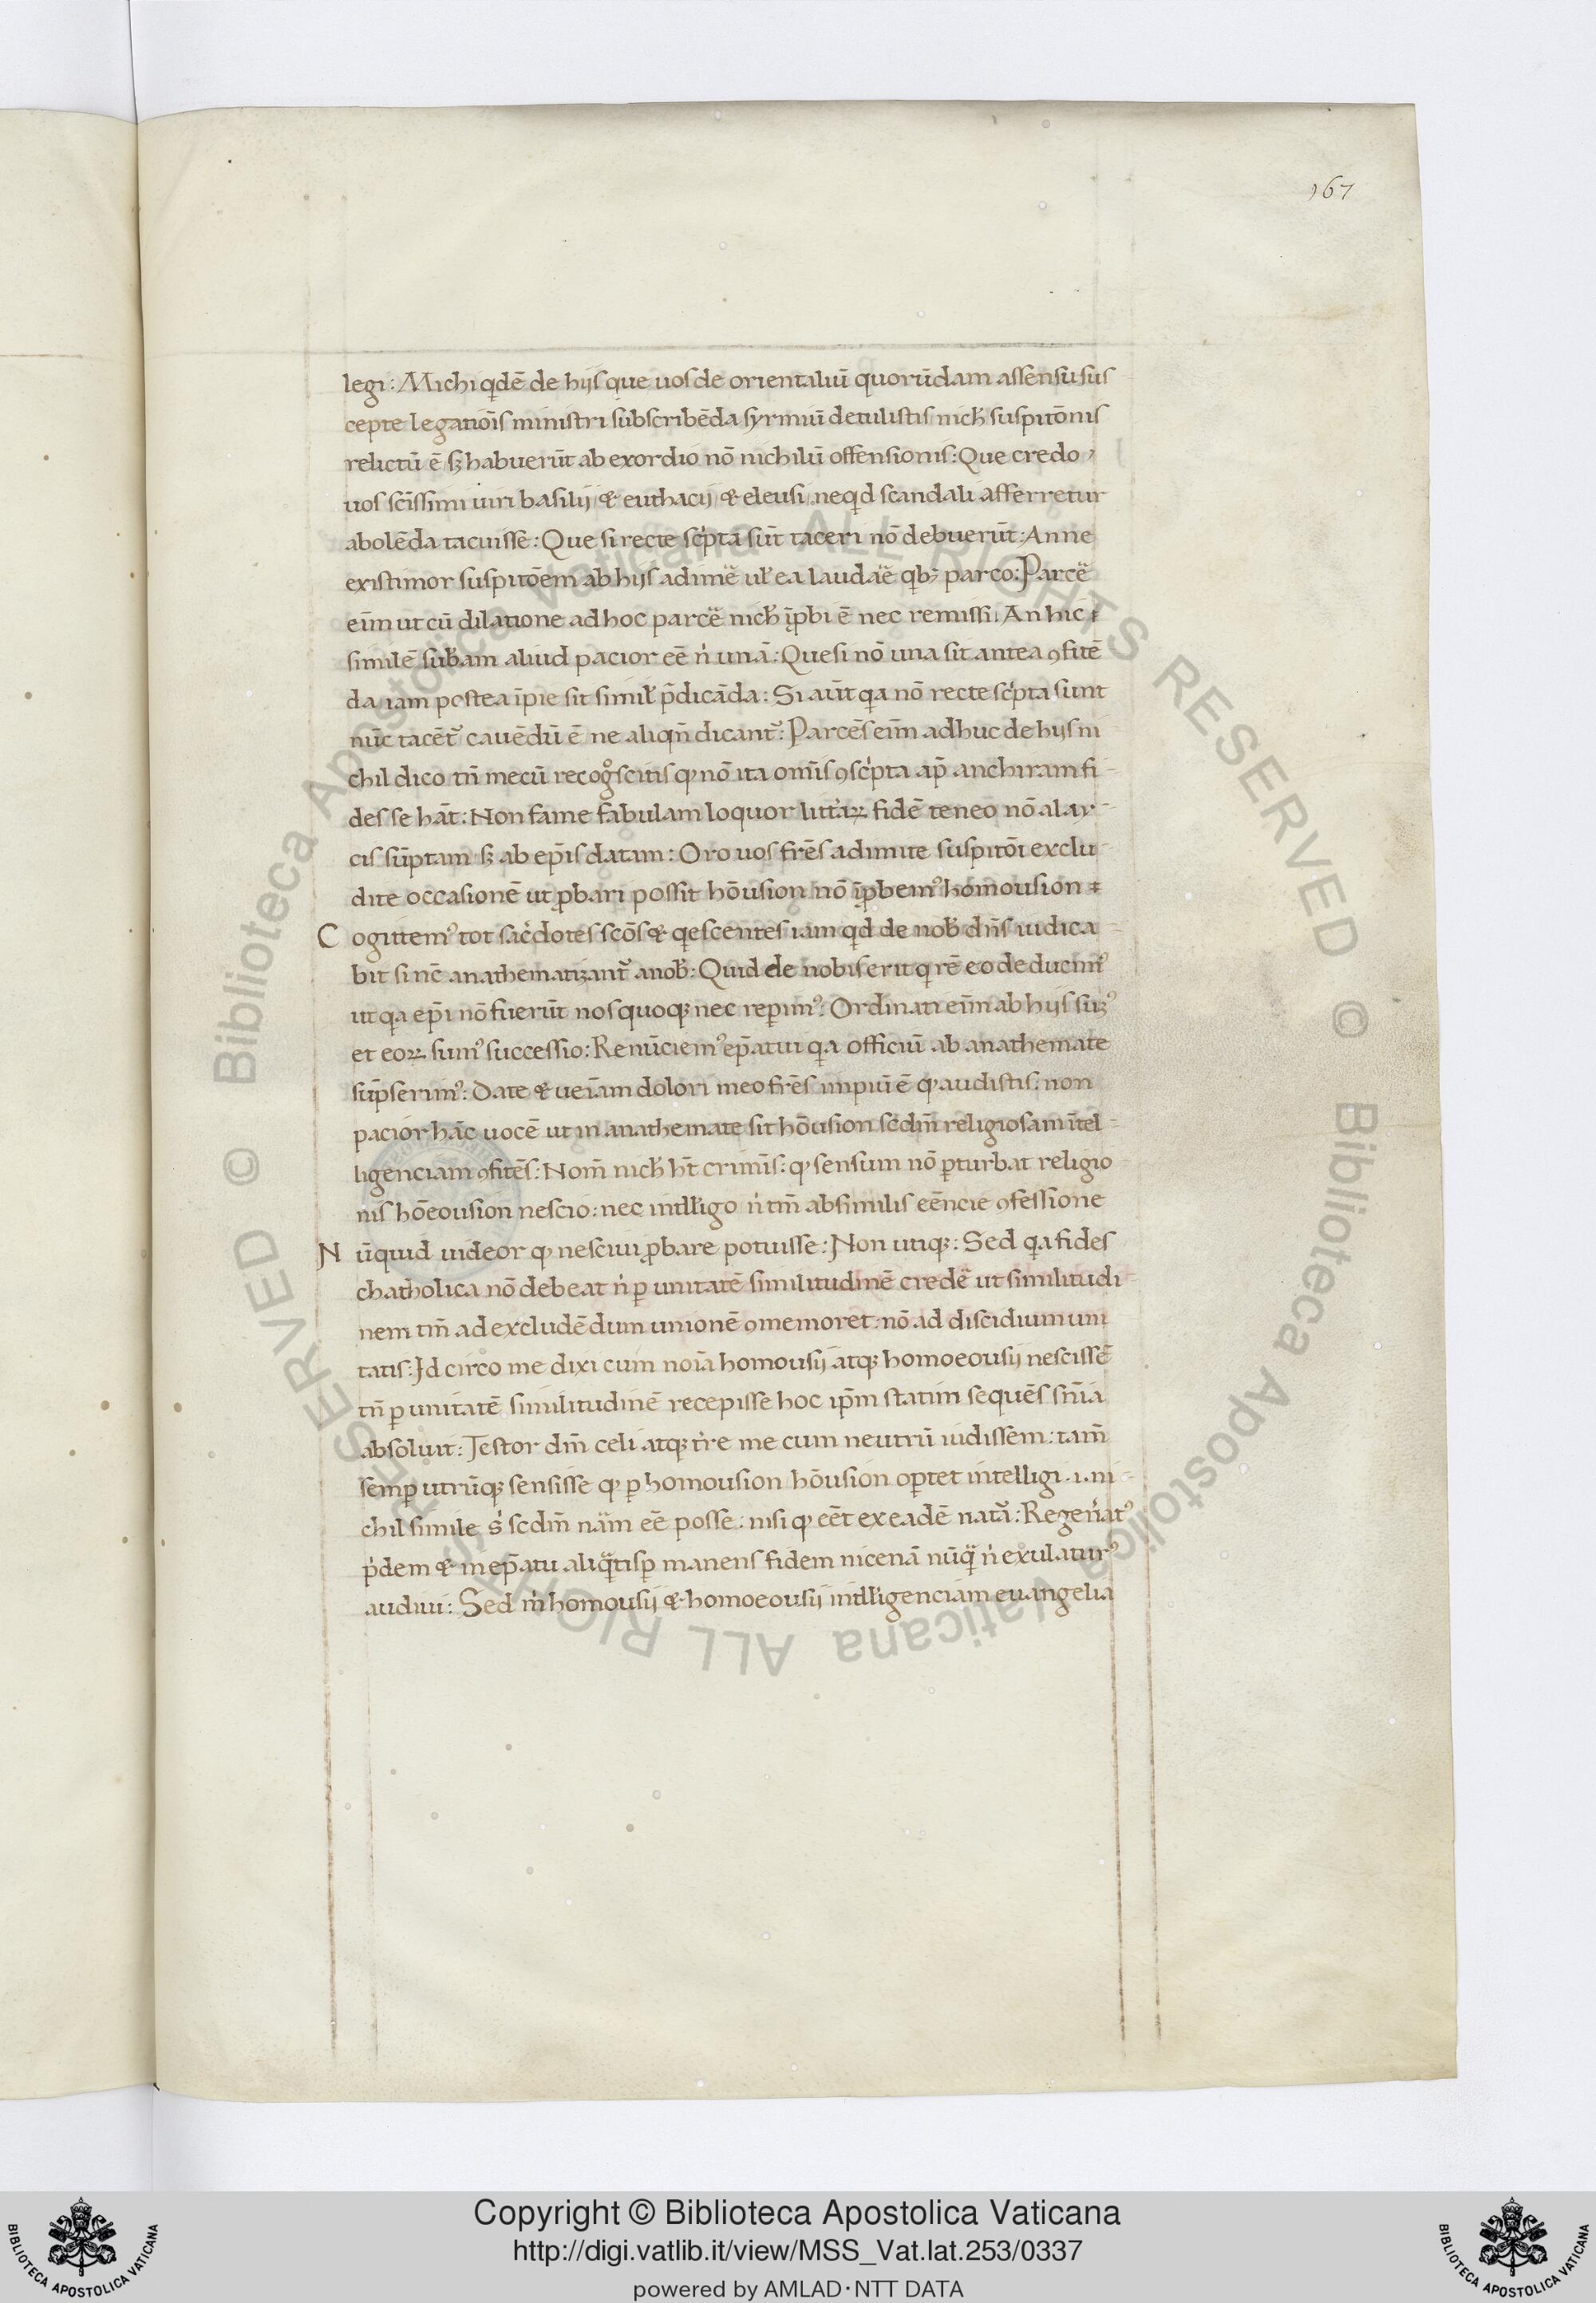 167
legi: Michi qdē de hijs que uos de orientaliū quorūdam assensu sus
cepte legatiōis ministri subscribēda syrmiū detulistis nich̄ suspitōnis
relictū ē sꝫ habuerūt ab exordio nō nichilū offensionis: Que credo
uos scīssimi uiri basilij & euthacij & eleusi neqd scandali afferretur
abolēda tacuisse: Que si recte sc̓pta sūt taceri nō debuerūt: An ne
existimor suspitōem ab hijs adimē̈ ul̓ ea laudāē qbꝫ parco: Parcē̈
eīm ut cū dilatione ad hoc parcē̈ nich̄ īpbi ē nec remissi. An hic
similē sub̄am aliud pacior eē n̓ unā: Que si nō una sit antea ꝯfitē
da iam postea īpie sit simil̓ p̄dicāda: Si aūt qa nō recte sc̓pta sunt
nūc tacēt᷑ cauēdū ē ne aliqn̄ dicant᷑: Parcēs eīm adhuc de hijs ni
chil dico tn̄ mecū recogͦscitis qꝫ nō ita om̄is ꝯsc̓pta ap̄ anchiram fi
des se hāt: Non fame fabulam loquor litt̓aꝝ fidē teneo nō a lay
cis sūptam sꝫ ab ep̄is datam: Oro uos frēs adimite suspitōi exclu
dite occasionē ut ꝓbari possit hōusion nō īꝓbemꝰ homousion
Cogitemꝰ tot sac̓dotes scōs & qescentes iam qd de nob̄ dn̄s iudica
bit si nc̄ anathematizant᷑ a nob̄: Quid de nobis erit q rē eo deducimꝰ
ut qa ep̄i nō fuerūt nos quoqꝫ nec cepimꝰ: Ordinati eīm ab hijs sūꝰ
et eoꝝ sumꝰ successio: Renūciemꝰ ep̄atui qa officiū ab anathemate
sūpserimꝰ: Date & ueīam dolori meo frēs impiū ē qꝫ audistis. non
pacior hāc uocē ut in anathemate sit hōusion scdm̄ religiosam ītel
ligenciam ꝯfitēs: Nom̄ nich̄ ht̄ crimīs: qꝫ sensum nō ꝑturbat religio
nis hōeousion nescio: nec intll̓igo n̓ tm̄ absimilis eēncie ꝯfessione
Nūquid uideor qꝫ nesciui ꝓbare potuisse: Non utiqꝫ: Sed qa fides
chatholica nō debeat n̓ ꝑ unitatē similitudinē credē̈ ut similitudi
nem tm̄ ad excludēdum unionē ꝯmemoret: nō ad discidium uni
tatis: Id circo me dixi cum noīa homousij atqꝫ homoeousij nescissē
tn̄ ꝑ unitatē similitudinē recepisse hoc ip̄m statim sequēs sn̄ia
absoluit: Testor dm̄ celi atqꝫ t̓re me cum neutrū uidissem: tam̄
semꝑ utrūqꝫ sensisse qꝫ ꝑ homousion hōusion oꝑtet intelligi .i. ni
chil simile s̓ scdm̄ nām eē posse: nisi qꝫ eēt ex eadē natā: Regen̓atꝰ
p̓dem & in ep̄atu aliq̄tisꝑ manens fidem nicenā nūq̄ n̓ exulaturꝰ
audiui: Sed m̓ homousij & homoeousij intll̓igenciam euangelia
Copyright © Biblioteca Apostolica Vaticana
http://digi.vatlib.it/view/MSS_Vat.lat.253/0337
powered by AMLAD·NTT DATA